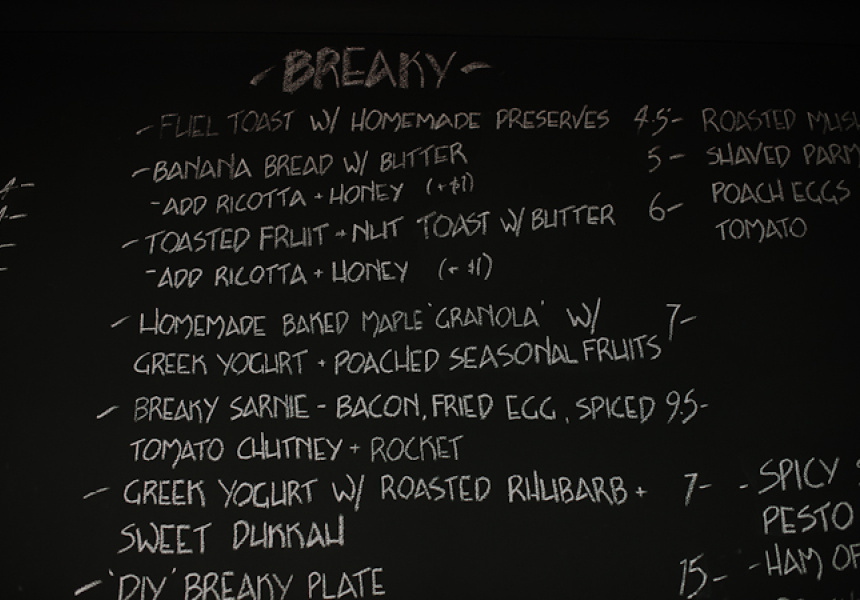 - BREAKY -
- FUEL TOAST W/ HOMEMADE PRESERVES 4.5-
- BANANA BREAD W/ BUTTER 5-
- ADD RICOTTA + HONEY (+$1)
- TOASTED FRUIT + NUT TOAST W/ BUTTER 6-
- ADD RICOTTA + HONEY (+ $1)
- HOMEMADE BAKED MAPLE 'GRANOLA' W/ 7-
GREEK YOGURT + POACHED SEASONAL FRUITS
- BREAKY SARNIE - BACON, FRIED EGG, SPICED 9.5-
TOMATO CHUTNEY + ROCKET
- GREEK YOGURT W/ ROASTED RHUBARB + 7-
SWEET DUKKAH
- 'DIY' BREAKY PLATE 15-
ROASTED
SHAVED
POACH EGGS
TOMATO
- SPICY
PESTO
- HAM